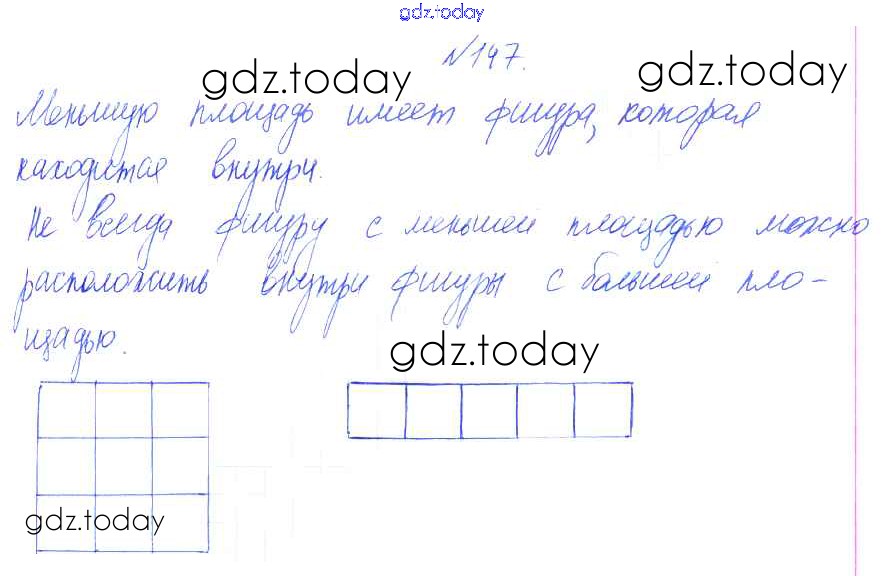 gdz.today
№147.
gdz.today
gdz.today
Меньшую площадь имеет фигура, которая
находится внутри.
Не всегда фигуру с меньшей площадью можно
расположить внутри фигуры с большей пло-
щадью.
gdz.today
gdz.today